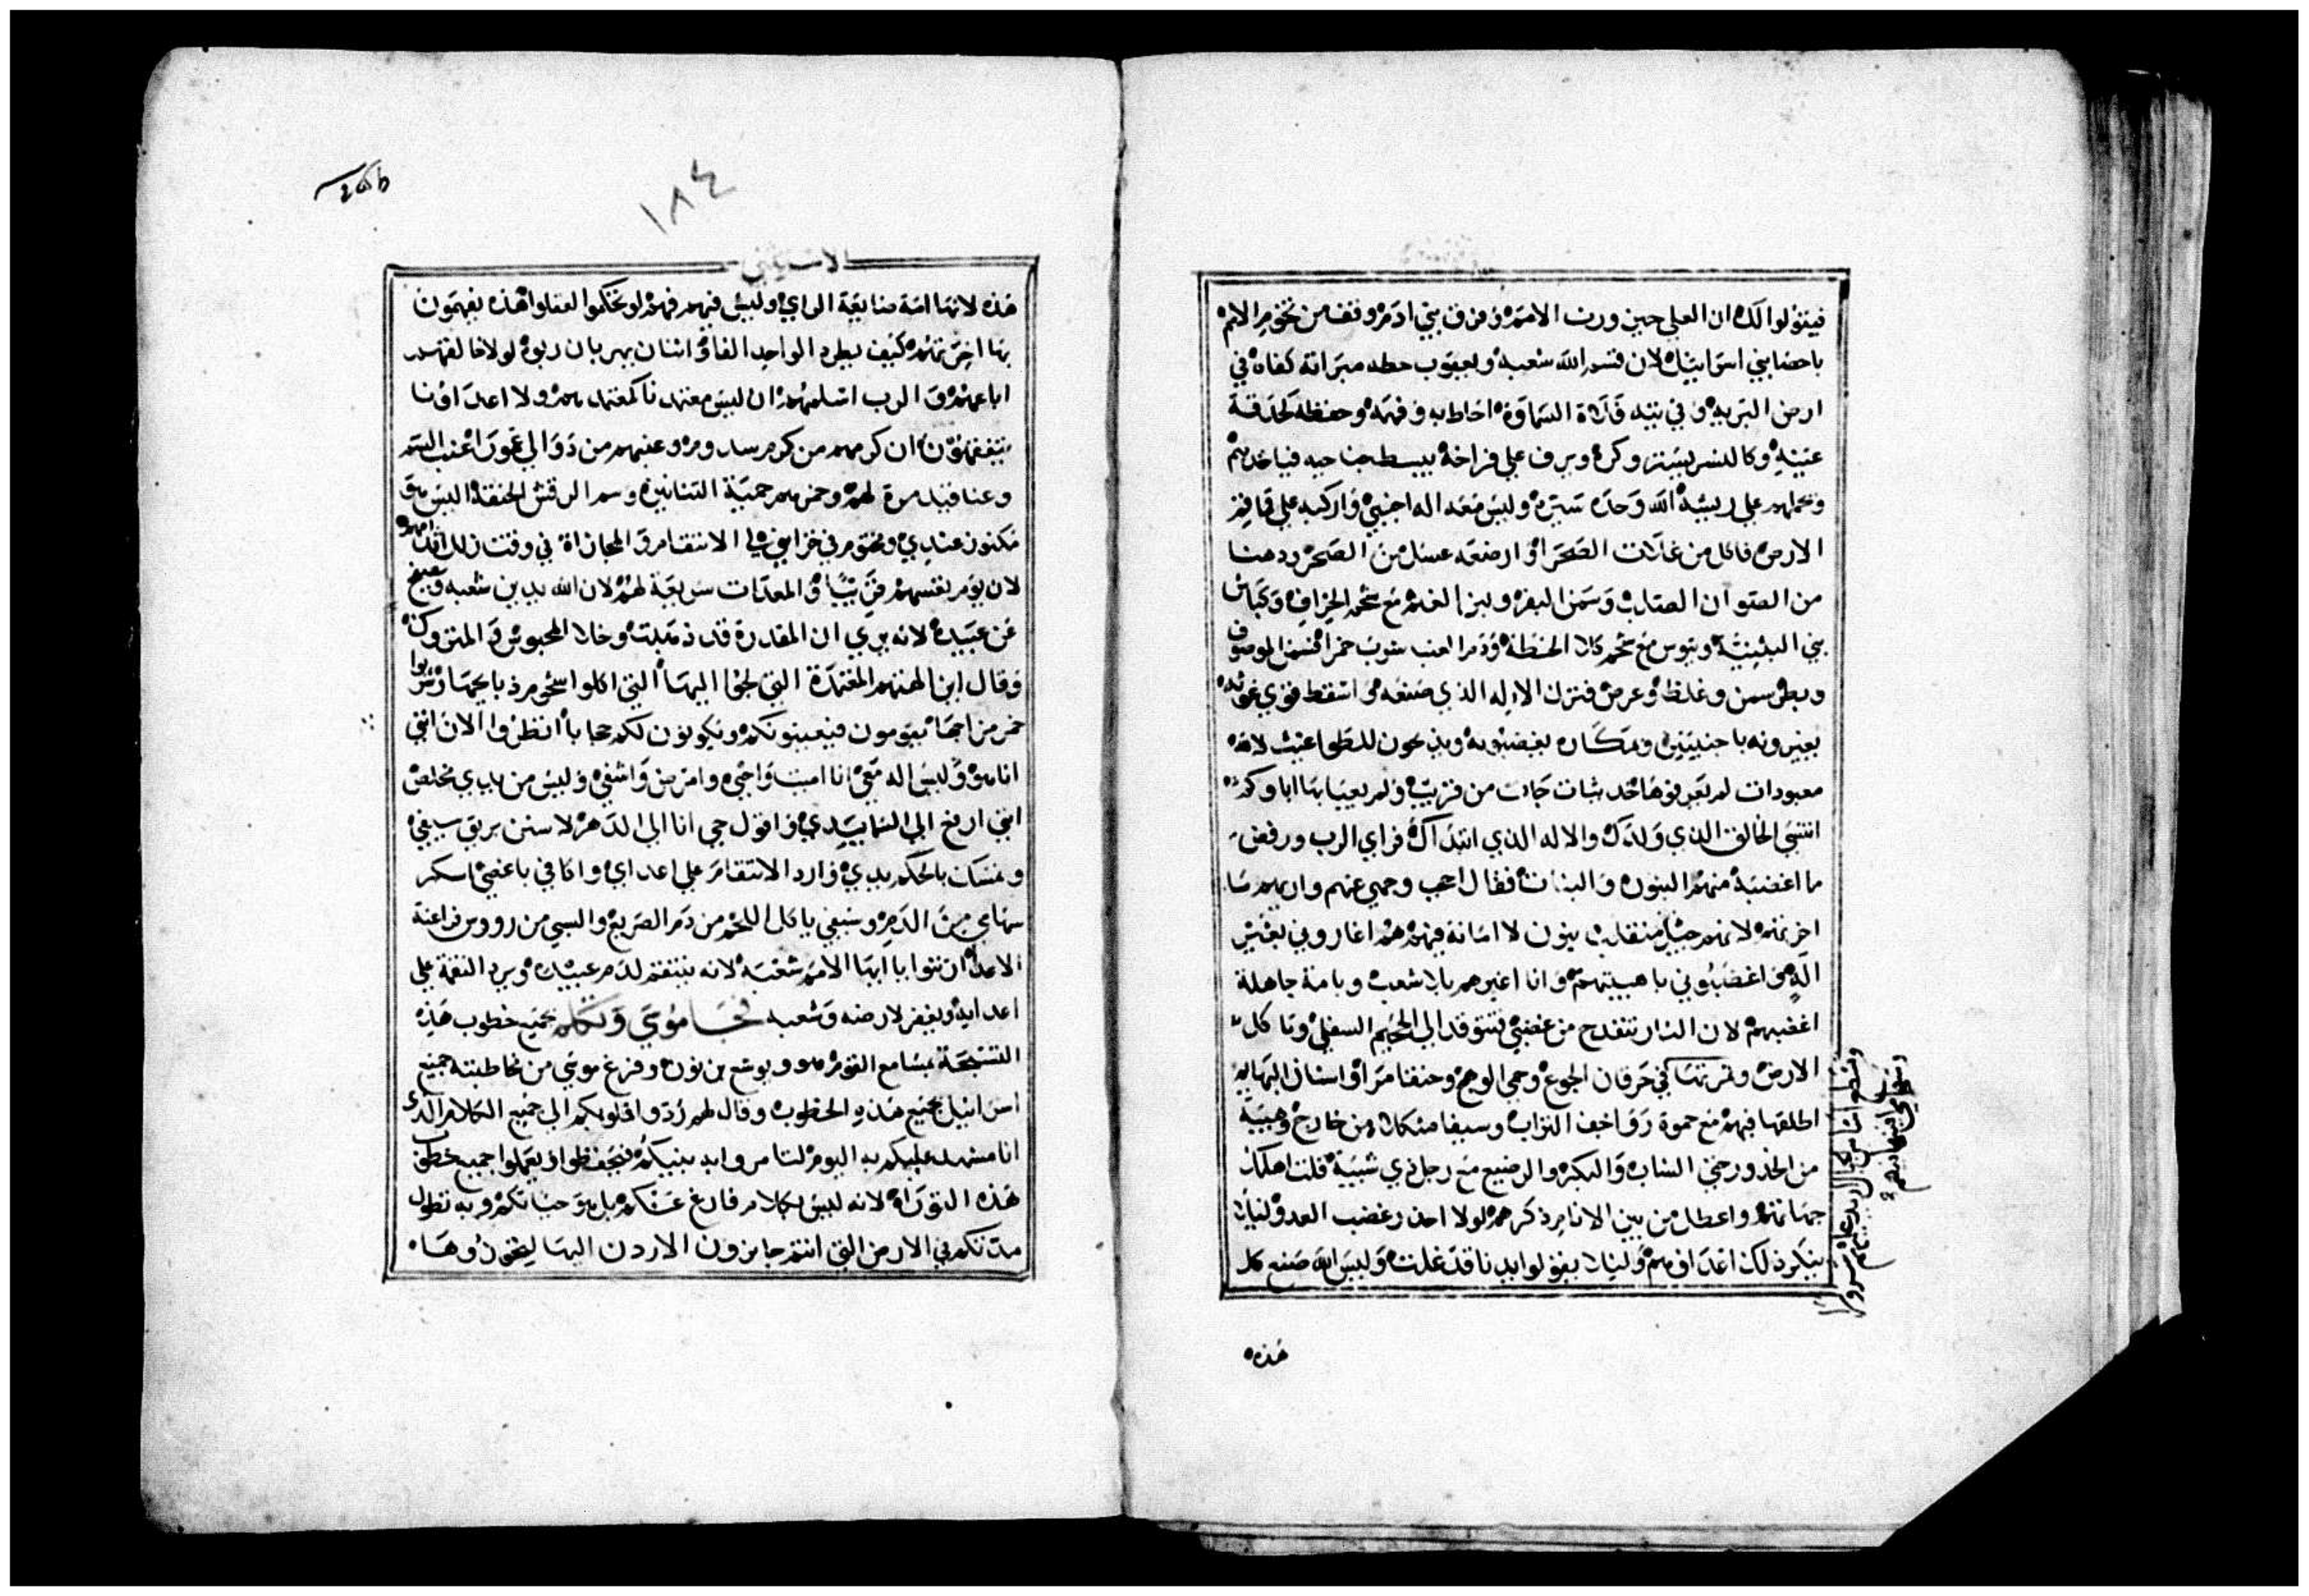 فيقولوا لك ان العلي حين ورث الامم وفرق بني ادم وقف من تخوم الامم
باحصا بني اسراييل لان قسم الله شعبه ويعقوب حطه ميراثه كفاه في
ارض البريه وفي تيه السماوة احاط به وفهمه وحفظه كحدقة
عينيه وكالنسر يستر وكره ويرف على فراخه يبسط جناحيه فياخدهم
ويحملهم على ريشه الله وحده سيره وليس معه اله اجنبي واركبه على
الارض فاكل من غلات الصحرا وارضعه عسل من الصخر ودهنا
من الصوان الصلب وسمن البقر ولبن الغنم مع شحم الخراف وكباش
بني البثنية وتيوس مع شحم كلا الحنطة ودم العنب شرب خمرا
وبطر سمن وغلظ وعرض فترك الاله الذي صنعه
يغيرونه باجنبيين ومكاره يغضبونه ويذبحون للطواغيث لاله
معبودات لم يعرفوها محدثات جات من قريب ولم يعبا بها اباوكم
انتسي الخالق الذي ولدك والاله الذي ابتداك فراي الرب ورفض
ما اغضبه منهم البنون والبنات فقال احجب وجهي عنهم واريهم ما
اخرتهم لانهم جيل منقلب بنون لا امانة فيهم هم اغاروني بغير
اله اغضبوني وانا اغيرهم بلا شعب وبامة جاهلة
اغضبهم لان النار تنقدح من غضبي فتتوقد الى الجحيم السفلي وتاكل
الارض وثمرتها
اطلقها فيهم مع حموة زواحف التراب وسيفا مثكلا من خارج وهيبة
من الخدور حتى الشاب والبكر والرضيع مع رجل ذي شيبة قلت اهلك
جهاتهم واعطل من بين الانام ذكرهم لولا اخذر غضب العدو ليلا
ينكر ذلك اعداوهم وليلا يقولوا ايدينا قد غلت وليس الله صنع كل
هذه
١٨٤
الاستثني
هذه لانها امة ضايعة الراي وليس فيهم فهم لو تحكموا لعقلوا هذه يفهمون
بها اخرتهم كيف يطرد الواحد الفا واثنان يهربان ربوة لولا خالقهم
اباعهم والرب اسلمهم ان ليس معتمدنا كمعتمدهم ولا اعداونا
يتفقهون ان كرمهم من كرم سدوم وعنبهم من دوالي عمورا عنب السم
وعناقيد مرة لهم وخمرهم حمية التنانين وسم الرقش الحنقة اليس هو
مكنون عندي ومختوم في خزايني لي الانتقام والمجازاة في وقت تزل اقدامهم
لان يوم تعسهم قريبا والمعدات سريعة لهم لان الله يدين شعبه ويصفح
عن عبيده لانه يري ان المقدرة قد ذهبت وخلا المحبوس والمتروك
وقال اين الهتهم المعتمدة التي لجوا اليها التي اكلوا شحوم ذبايحها وشربوا
خمر مزاجها يقومون فيعينونكم ويكونون لكم حجابا انظروا الان انني
انا هو وليس اله معي انا اميت واحيي وامرض واشفي وليس من يدي مخلص
انني ارفع الى السما يدي واقول حي انا الى الدهر لاسنن بريق سيفي
وتمسك بالحكم يدي وارد الانتقام على اعداي واكافي باغضي اسكر
سهامي من الدم وسيفي ياكل اللحم من دم الصريع والسبي من رووس فراعنة
الاعدا اثنوا يا ايها الامم شعبه لانه ينتقم لدم عبيده ويرد النقمة على
اعدايه ويغفر لارضه وشعبه فجا موسي وتكلم بجميع خطوب هذه
التسبحة بمسامع القوم هو ويوشع بن نون وفرغ موسي من مخاطبته جميع
اسراييل بجميع هذه الخطوب وقال لهم ردوا قلوبكم الى جميع الكلام الذي
انا مشهد عليكم به اليوم لتامروا به بنيكم فيحفظوا ويعملوا جميع خطوب
هذه التوراة لانه ليس بكلام فارغ عنكم بل هو حياتكم وبه تطول
مدتكم في الارض التي انتم جايزون الاردن اليها لتحوزوها